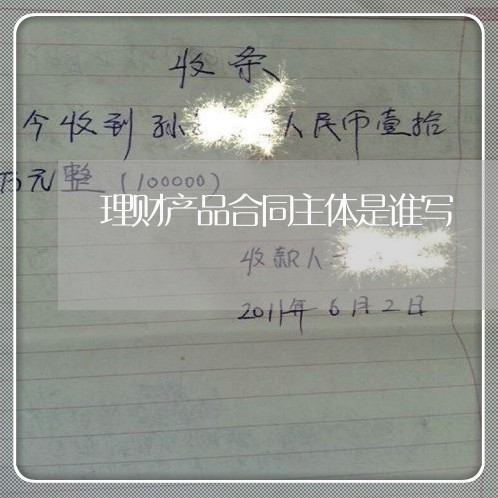 收条
今收到孙 人民币壹拾
万元整（100000）
理财产品合同主体是谁写
收款人
2011年6月2日